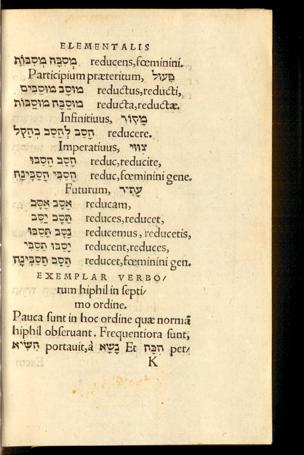 ELEMENTALIS
מְסִבָּה מְסִבּוֹת reducens, fœminini.
Participium præteritum, פָּעוּל
מוּסָב מוּסַבִּים reductus, reducti,
מוּסַבָּה מוּסַבּוֹת reducta, reductæ.
Infinitiuus, מָקוֹר
הָסֵב לְהָסֵב בְּהָקֵל reducere.
Imperatiuus, צִוּוּי
הָסֵב הָסֵבּוּ reduc, reducite,
הָסֵבִּי הֲסִבֶּינָה reduc, fœminini gene.
Futurum, עָתִיד
אָסֵב אָסֵב reducam,
תָּסֵב יָסֵב reduces, reducet,
נָסֵב תָּסֵבּוּ reducemus, reducetis,
יָסֵבּוּ תָּסֵבִּי reducent, reduces,
תָּסֵב תְּסִבֶּינָה reducet, fœminini gen.
EXEMPLAR VERBO/
rum hiphil in septi
mo ordine.
Pauca sunt in hoc ordine quæ normā
hiphil obseruant. Frequentiora sunt,
הִשִּׂיא portauit, à נָשָׂא Et הִכָּה per/
K